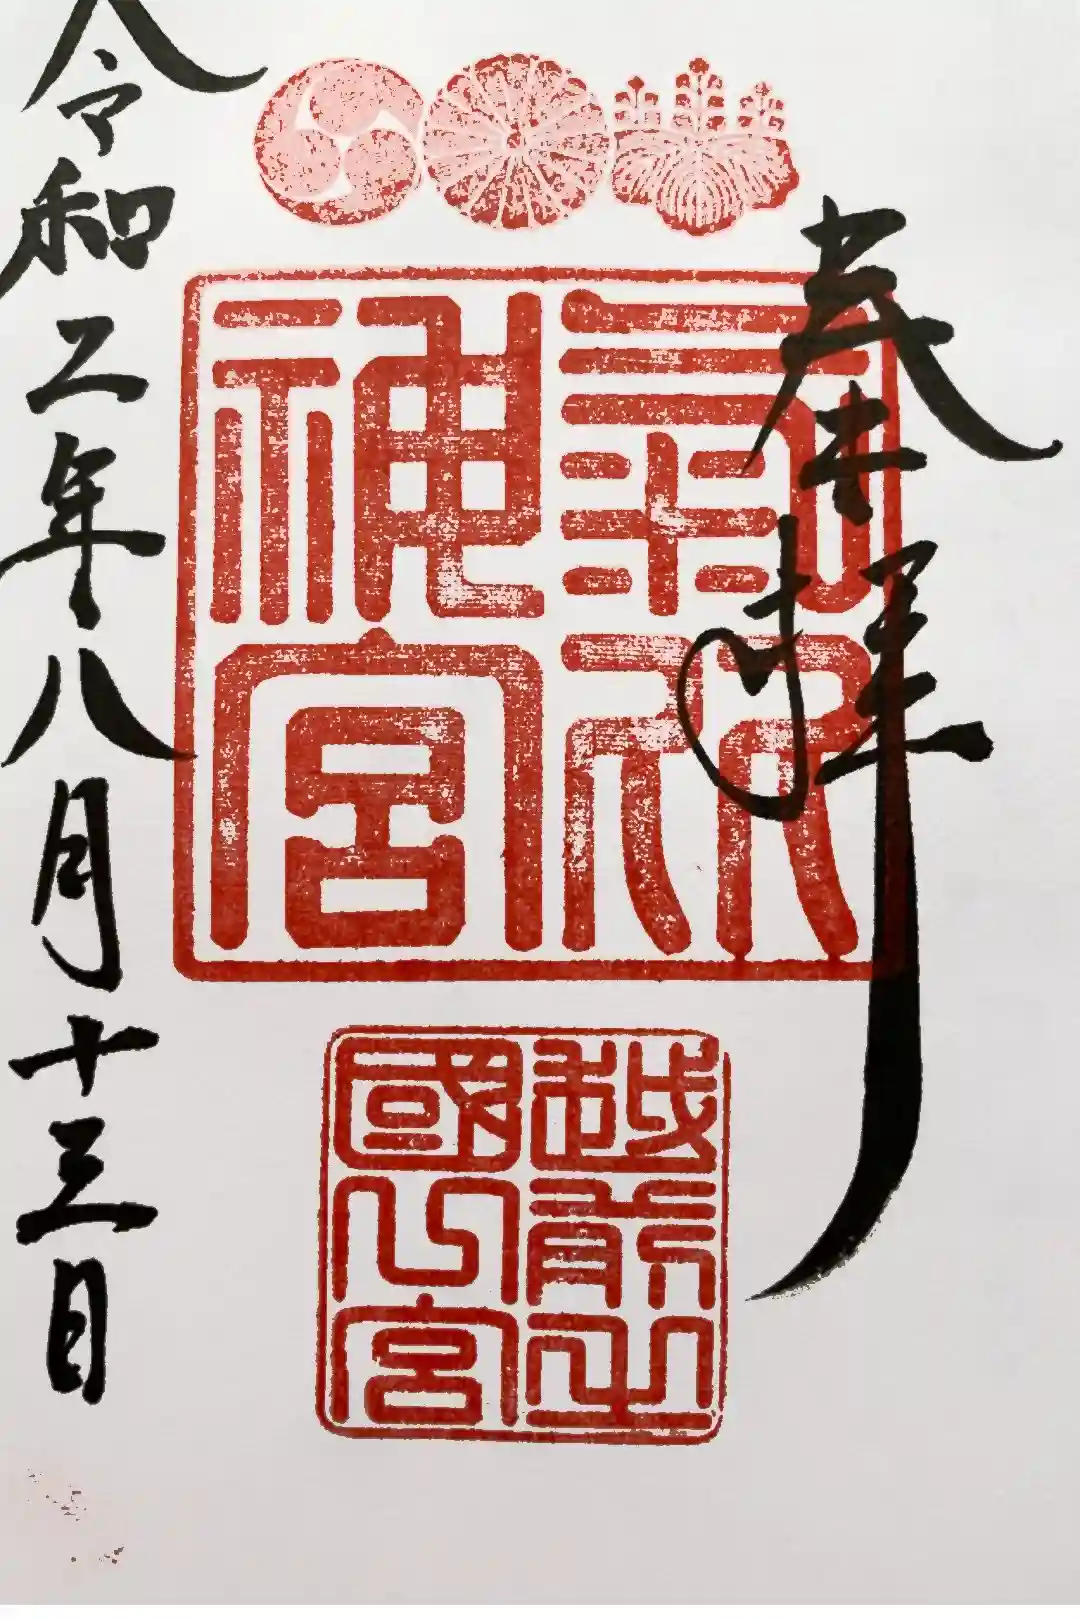 奉拝
氣比
神宮
越前之
國一宮
令和二年八月十三日